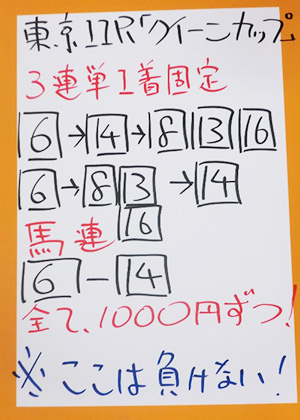 東京11R「クイーンカップ」
3連単1着固定
6→14→8 13 16
6→8 13 16→14
馬連
6－14
全て、1000円ずつ!
※ここは負けない!